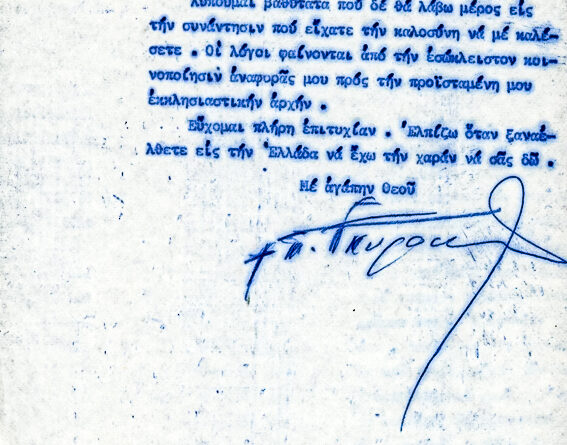 λυποῦμαι βαθύτατα πού δέ θά λάβω μέρος εἰς
τήν συνάντησιν πού εἴχατε τήν καλοσύνη νά μέ καλέ-
σετε . Οἱ λόγοι φαίνονται ἀπό τήν ἐσώκλειστον κοι-
νοποίησιν ἀναφορᾶς μου πρός τήν προϊσταμένη μου
ἐκκλησιαστικήν ἀρχήν .
Εὔχομαι πλήρη ἐπιτυχίαν . Ἐλπίζω ὅταν ξαναέ-
λθετε εἰς τήν Ἑλλάδα νά ἔχω τήν χαράν νά σᾶς δῶ .
Μέ ἀγάπην Θεοῦ